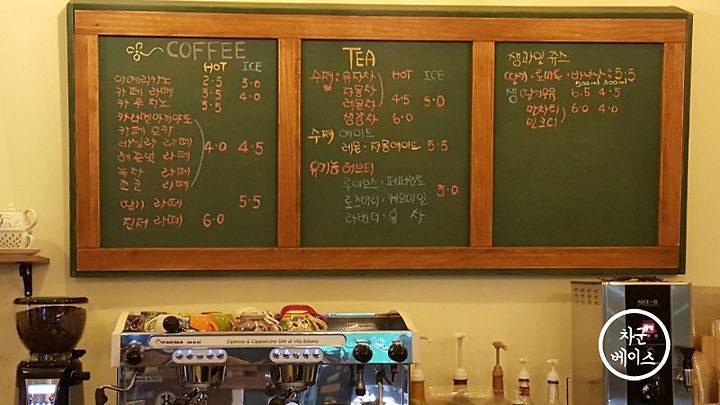 COFFEE
HOT ICE
아메리카노 2.5 3.0
카페 라떼 3.5 4.0
카푸치노 3.5
카라멜마끼아또
카페모카
바닐라 라떼 4.0 4.5
헤즐넛 라떼
녹차 라떼
초코 라떼
딸기 라떼 5.5
진저 라떼 6.0
TEA
HOT ICE
수제: 유자차
자몽차
레몬차 4.5 5.0
생강차 6.0
수제 에이드
레몬·자몽에이드 5.5
유기농 허브티
루이보스·페퍼민트
로즈마리·캐모마일 5.0
라벤더·홍차
생과일 쥬스
딸기·토마토·바나나 : 5.5
500ml 300ml
생 딸기우유 6.5 4.5
6.0 4.0
FAEMA
Espresso & Cappuccino Stile di Vita Italiano.
차군
베이스